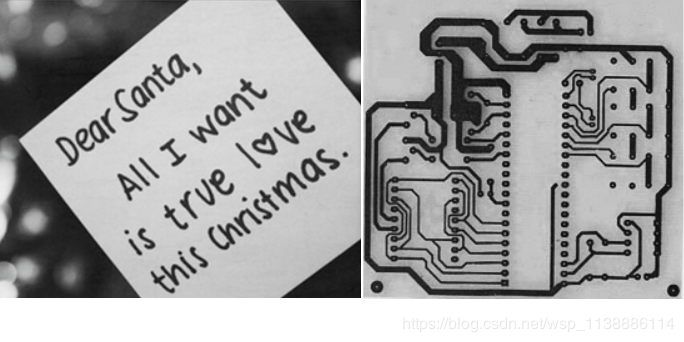 Dear Santa,
All I want
is true l♥ve
this Christmas.
https://blog.csdn.net/wsp_1138886114